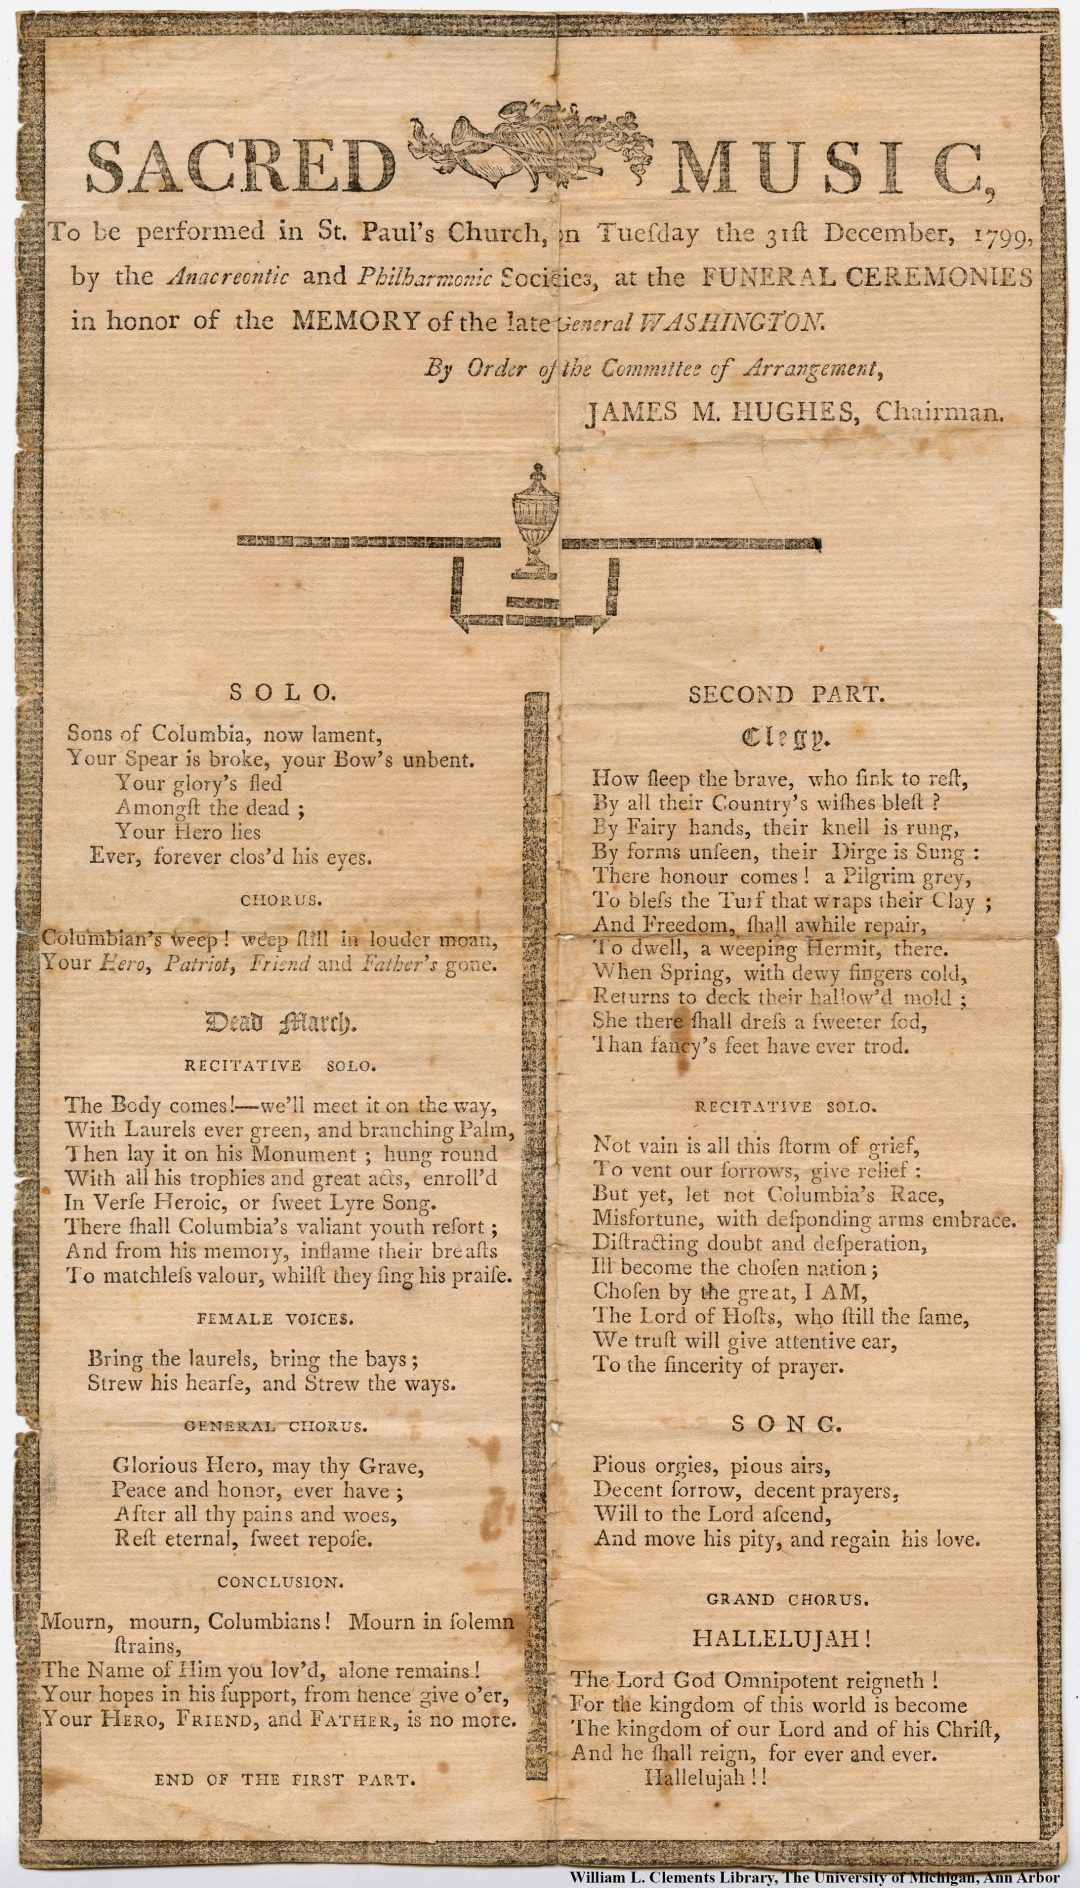 SACRED MUSIC,
To be performed in St. Paul's Church, on Tueſday the 31ſt December, 1799,
by the Anacreontic and Philharmonic Societies, at the FUNERAL CEREMONIES
in honor of the MEMORY of the late General WASHINGTON.
By Order of the Committee of Arrangement,
JAMES M. HUGHES, Chairman.
SOLO.
Sons of Columbia, now lament,
Your Spear is broke, your Bow's unbent.
Your glory's fled
Amongſt the dead ;
Your Hero lies
Ever, forever clos'd his eyes.
CHORUS.
Columbian's weep! weep ſtill in louder moan,
Your Hero, Patriot, Friend and Father's gone.
Dead March.
RECITATIVE SOLO.
The Body comes!—we'll meet it on the way,
With Laurels ever green, and branching Palm,
Then lay it on his Monument ; hung round
With all his trophies and great acts, enroll'd
In Verſe Heroic, or ſweet Lyre Song.
There ſhall Columbia's valiant youth reſort ;
And from his memory, inflame their breaſts
To matchleſs valour, whilſt they ſing his praiſe.
FEMALE VOICES.
Bring the laurels, bring the bays ;
Strew his hearſe, and Strew the ways.
GENERAL CHORUS.
Glorious Hero, may thy Grave,
Peace and honor, ever have ;
After all thy pains and woes,
Reſt eternal, ſweet repoſe.
CONCLUSION.
Mourn, mourn, Columbians! Mourn in ſolemn
ſtrains,
The Name of Him you lov'd, alone remains!
Your hopes in his ſupport, from hence give o'er,
Your HERO, FRIEND, and FATHER, is no more.
END OF THE FIRST PART.
SECOND PART.
Elegy.
How ſleep the brave, who ſink to reſt,
By all their Country's wiſhes bleſt ?
By Fairy hands, their knell is rung,
By forms unſeen, their Dirge is Sung :
There honour comes! a Pilgrim grey,
To bleſs the Turf that wraps their Clay ;
And Freedom, ſhall awhile repair,
To dwell, a weeping Hermit, there.
When Spring, with dewy fingers cold,
Returns to deck their hallow'd mold ;
She there ſhall dreſs a ſweeter ſod,
Than fancy's feet have ever trod.
RECITATIVE SOLO.
Not vain is all this ſtorm of grief,
To vent our ſorrows, give relief :
But yet, let not Columbia's Race,
Misfortune, with deſponding arms embrace.
Diſtracting doubt and deſperation,
Ill become the choſen nation ;
Choſen by the great, I AM,
The Lord of Hoſts, who ſtill the ſame,
We truſt will give attentive ear,
To the ſincerity of prayer.
SONG.
Pious orgies, pious airs,
Decent ſorrow, decent prayers,
Will to the Lord aſcend,
And move his pity, and regain his love.
GRAND CHORUS.
HALLELUJAH!
The Lord God Omnipotent reigneth !
For the kingdom of this world is become
The kingdom of our Lord and of his Chriſt,
And he ſhall reign, for ever and ever.
Hallelujah!!
William L. Clements Library, The University of Michigan, Ann Arbor